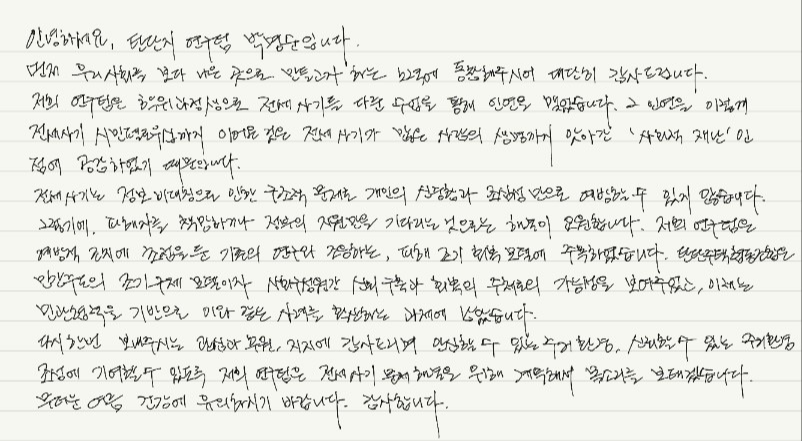 안녕하세요, 탄탄지 연구팀 박명순입니다.
먼저 우리사회를 보다 나은 곳으로 만들고자 하는 노력에 동참해주시어 대단히 감사드립니다.
저희 연구팀은 학우과정생으로 전세사기를 다룬 수업을 통해 인연을 맺었습니다. 그 인연을 이렇게
전세사기 시민펠로우십까지 이어온 것은 전세사기가 많은 사람의 생명까지 앗아간 '사회적 재난'인
점에 공감하였기 때문입니다.
전세사기는 정보 비대칭으로 인한 구조적 문제로 개인의 신중함과 조심성만으로 예방할 수 있지 않습니다.
그렇기에, 피해자를 책망하거나 정부의 지원만을 기다리는 것으로는 해결이 요원합니다. 저희 연구팀은
예방적 조치에 초점을 둔 기존의 연구와 조응하는, 피해 조기 회복 모델에 주목하였습니다. 탄탄주택협동조합은
민간주도의 조기구제 모델이자 사회구성원간 신뢰 구축과 회복의 주체로의 가능성을 보여주었고, 이제는
민관협력을 기반으로 이와 같은 사례를 확산하는 과제에 남았습니다.
다시 한번 보내주시는 관심과 응원, 지지에 감사드리며 안심할 수 있는 주거환경, 신뢰할 수 있는 주거환경
조성에 기여할 수 있도록 저희 연구팀은 전세사기 문제해결을 위해 계속해서 목소리를 보태겠습니다.
무더운 여름 건강에 유의하시기 바랍니다. 감사합니다.